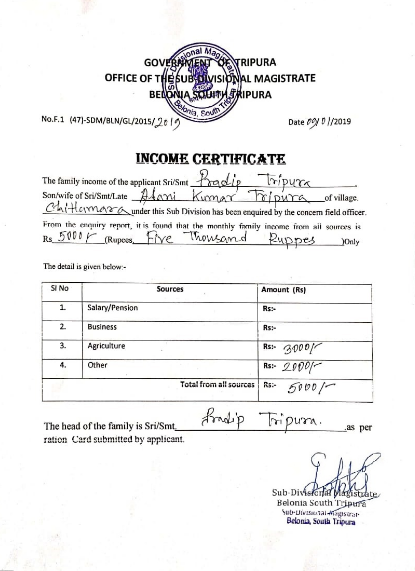 GOVERNMENT OF TRIPURA
OFFICE OF THE SUB-DIVISIONAL MAGISTRATE
BELONIA SOUTH TRIPURA
No.F.1 (47)-SDM/BLN/GL/2015/2019 Date 09/01/2019
INCOME CERTIFICATE
The family income of the applicant Sri/Smt Pradip Tripura
Son/wife of Sri/Smt/Late Kumar Tripura of village.
Chittamara under this Sub Division has been enquired by the concern field officer.
From the enquiry report, it is found that the monthly family income from all sources is
Rs. 5000/- (Rupees, Five Thousand Ruppes )Only
The detail is given below:-
Sl No Sources Amount (Rs)
1. Salary/Pension Rs:-
2. Business Rs:-
3. Agriculture Rs:- 3000/-
4. Other Rs:- 2000/-
Total from all sources Rs:- 5000/-
The head of the family is Sri/Smt, Pradip Tripura. as per
ration Card submitted by applicant.
Sub-Divisional Magistrate
Belonia South Tripura
Sub-Divisional Magistrate
Belonia, South Tripura